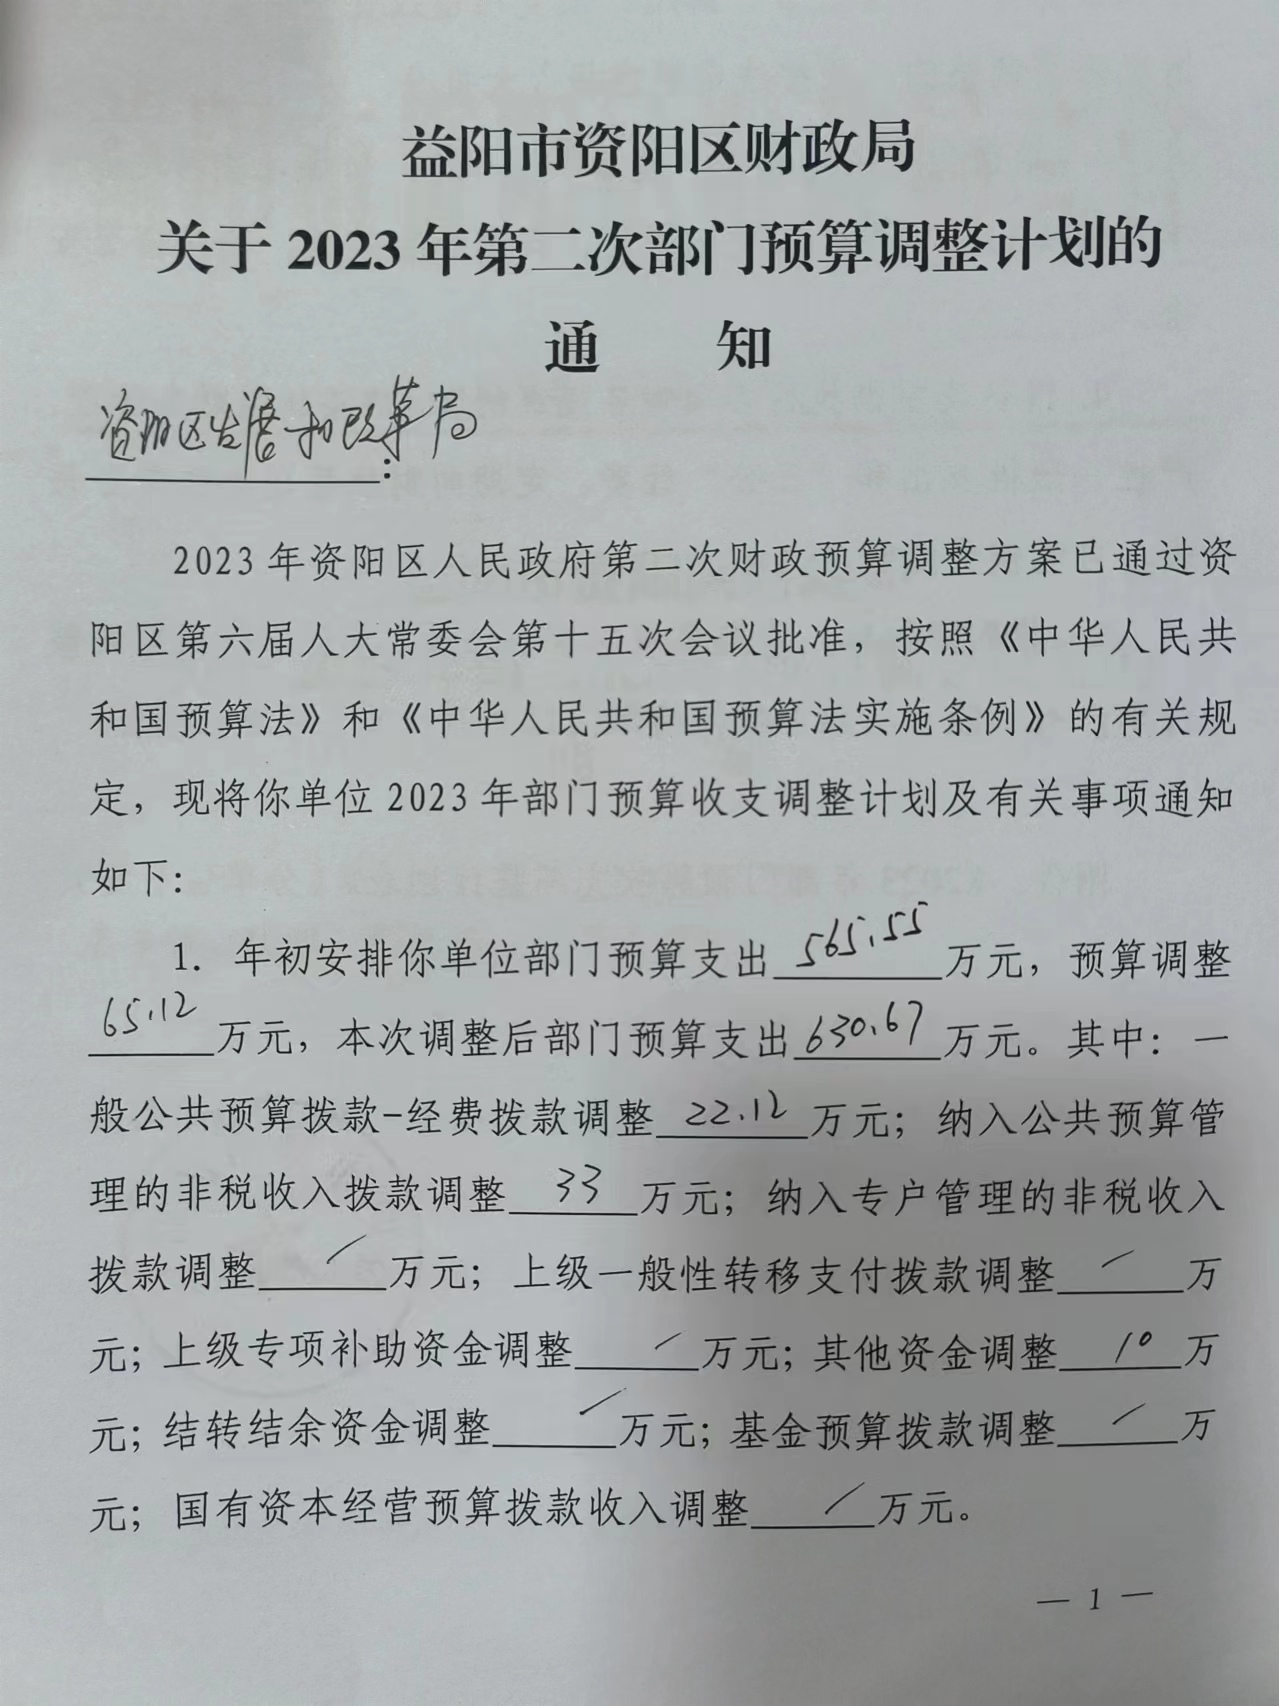 益阳市资阳区财政局
关于 2023 年第二次部门预算调整计划的
通 知
资阳区发展和改革局:
2023 年资阳区人民政府第二次财政预算调整方案已通过资
阳区第六届人大常委会第十五次会议批准，按照《中华人民共
和国预算法》和《中华人民共和国预算法实施条例》的有关规
定，现将你单位 2023 年部门预算收支调整计划及有关事项通知
如下:
1. 年初安排你单位部门预算支出565.55万元，预算调整
65.12万元，本次调整后部门预算支出630.67万元。其中：一
般公共预算拨款-经费拨款调整22.12万元；纳入公共预算管
理的非税收入拨款调整33万元；纳入专户管理的非税收入
拨款调整/万元；上级一般性转移支付拨款调整/万
元；上级专项补助资金调整/万元；其他资金调整10万
元；结转结余资金调整/万元；基金预算拨款调整/万
元；国有资本经营预算拨款收入调整/万元。
— 1 —